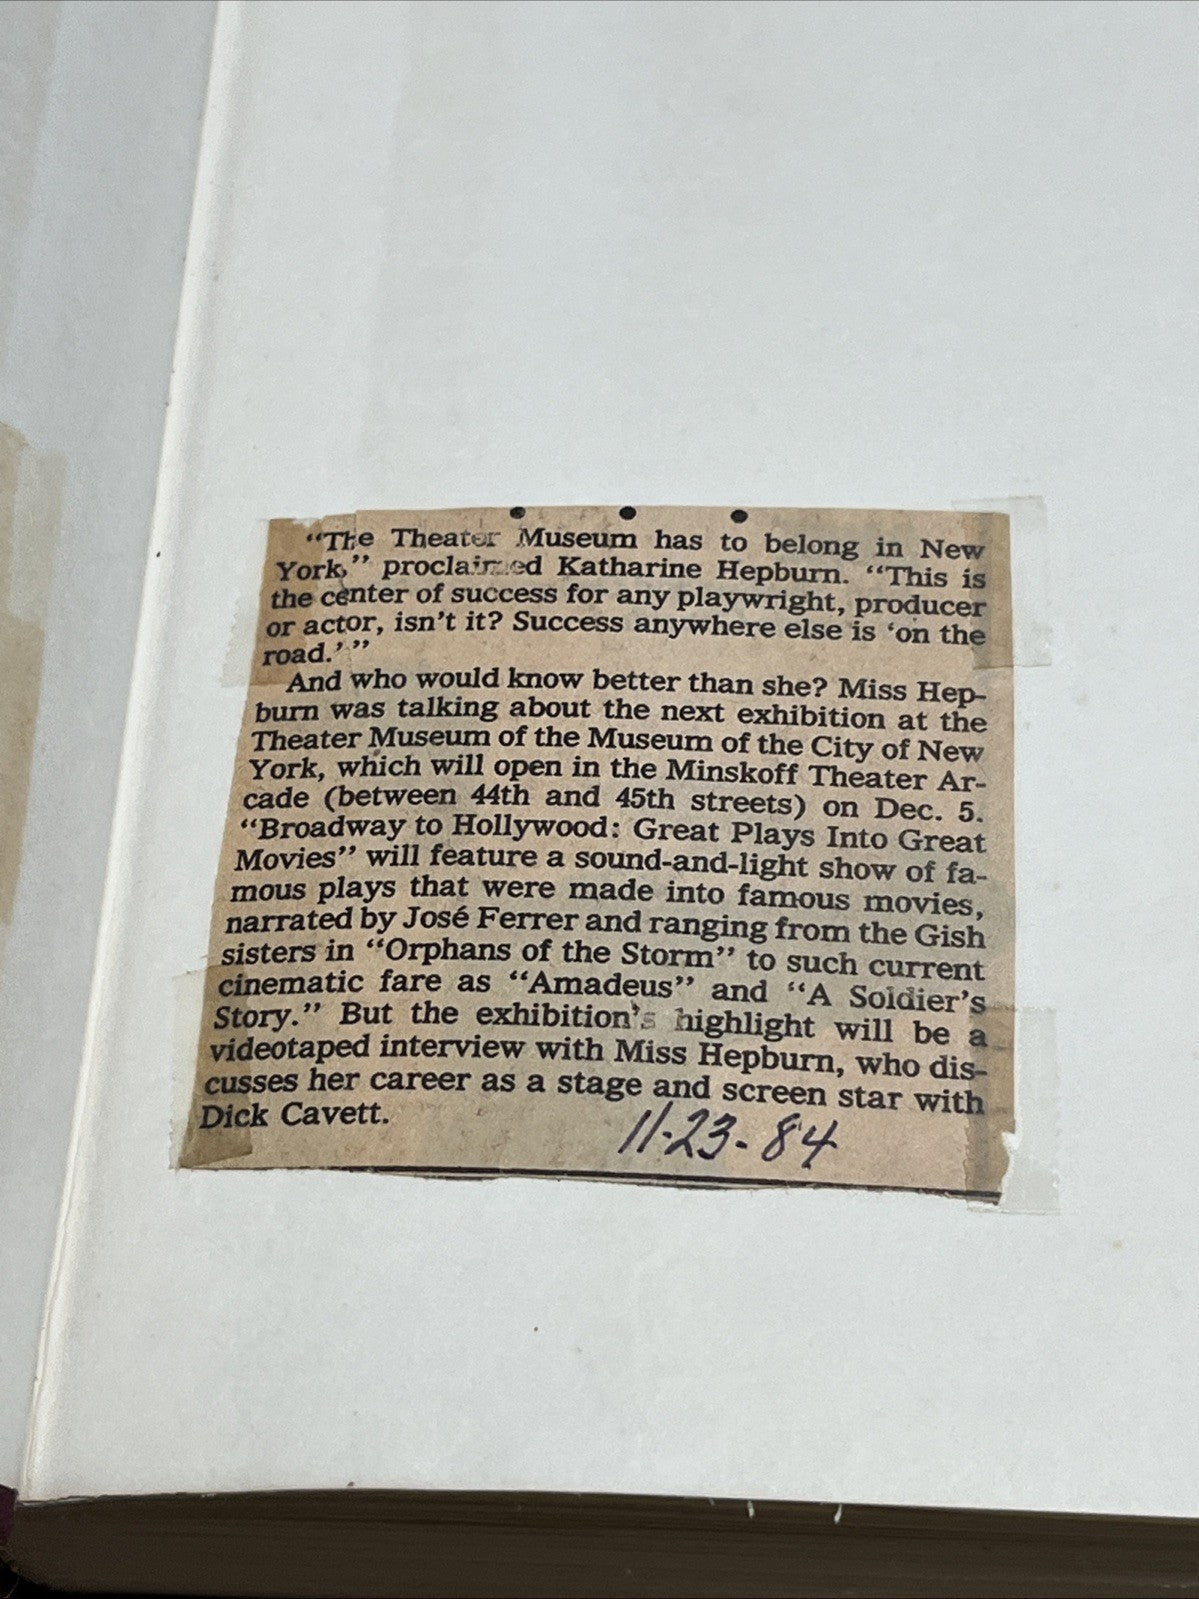 “The Theater Museum has to belong in New
York,” proclaimed Katharine Hepburn. “This is
the center of success for any playwright, producer
or actor, isn’t it? Success anywhere else is ‘on the
road.’ ”
And who would know better than she? Miss Hep-
burn was talking about the next exhibition at the
Theater Museum of the Museum of the City of New
York, which will open in the Minskoff Theater Ar-
cade (between 44th and 45th streets) on Dec. 5.
“Broadway to Hollywood: Great Plays Into Great
Movies” will feature a sound-and-light show of fa-
mous plays that were made into famous movies,
narrated by José Ferrer and ranging from the Gish
sisters in “Orphans of the Storm” to such current
cinematic fare as “Amadeus” and “A Soldier’s
Story.” But the exhibition’s highlight will be a
videotaped interview with Miss Hepburn, who dis-
cusses her career as a stage and screen star with
Dick Cavett.
11-23-84